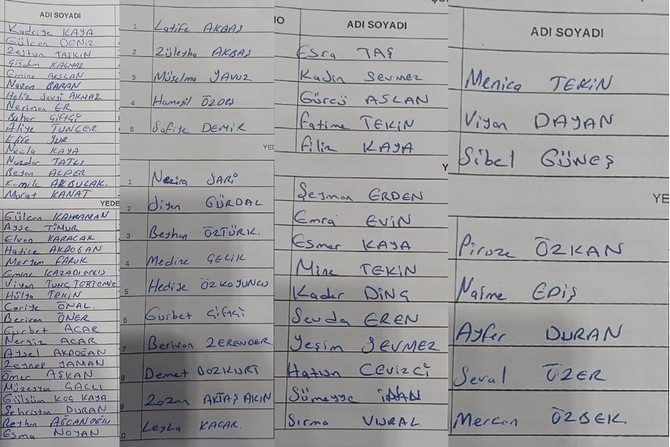 Kadriye KAYA
Gülcan DENİZ
Zeytun TAŞKIN
Çiğdem KAÇMAZ
Emine ASLAN
Nazan BARAN
Filiz Sevgi AKMAZ
Neriman ER
Bahar ÇİFTÇİ
Atiye TUNCER
Necla KAYA
Nuredar TATLI
Beyan ALPER
Kamile AKBULAK
Murat KANAT
YEDE
Gülcan KAHRAMAN
Ayşe TİMUR
Elvan KARACAR
Hatice AKDOĞAN
Meryem FARUK
Emine
Viyan TUNÇ
Hülya TEKİN
Cariye ÖNAL
Berivan ÖNER
Gurbet ACAR
Nergiz ACAR
Aysel AKDOĞAN
Zeynep YAMAN
Ömer AŞKAN
Müzeyyen SAÇLI
Gülsüm KOÇ KAYA
Şehristan DURAN
Beyhan
Esma NOYAN
1 Latife AKBAŞ
2 Züleyha AKBAŞ
3 Müselma YAVUZ
4 Hamayil ÖZDEŞ
5 Safiye DEMİR
YED
1 Nazira SARİ
2 Jiyan GÜRDAL
3 Beyhan ÖZTÜRK
4 Medine ÇELİK
5 Hediye ÖZKOYUNCU
6 Gurbet ÇİFTÇİ
7 Berivan ZERENDER
8 Demet BOZKURT
9 Zozan AKTAŞ AKIN
Leyla KAÇAR
ADI SOYADI
Esra TAŞ
Kadin SEVMEZ
Gürcü ASLAN
Fatime TEKİN
Filiz KAYA
Y
Şeyman ERDEN
Emra EVİN
Esmer KAYA
Mine TEKİN
Kader DİNÇ
Sevda EREN
Yeşim SEVMEZ
Hatun CEVİZCİ
Sümeyye İNAN
Sırma VURAL
ADI SOYADI
Menica TEKİN
Viyan DAYAN
Sibel GÜNEŞ
YE
Piroze ÖZKAN
Naime EDİŞ
Ayfer DURAN
Seval ÖZER
Mercan ÖZBEK